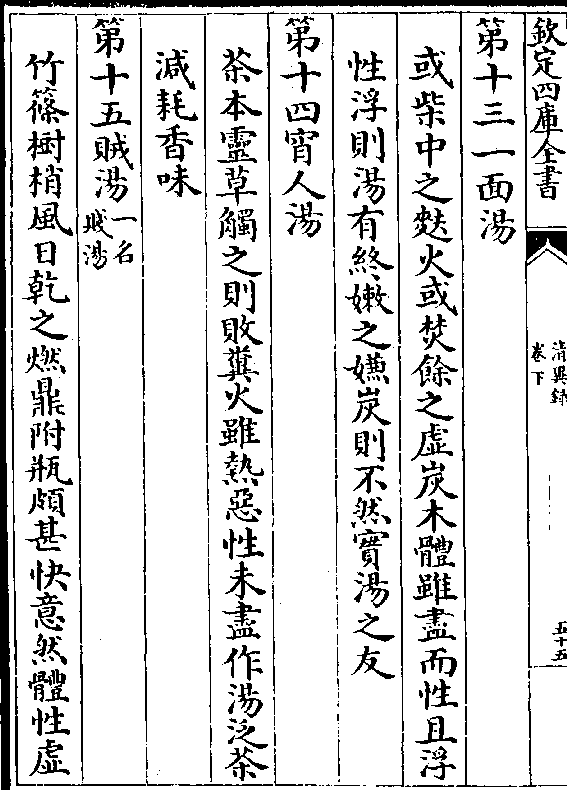 欽定四庫全書
清異録
卷下
五十五
第十三一面湯
或柴中之麩火或焚餘之虛炭木體雖盡而性且浮
性浮則湯有終嫩之嫌炭則不然實湯之友
第十四宵人湯
茶本靈草觸之則敗糞火雖熱惡性未盡作湯泛茶
減耗香味
第十五賊湯一名
賤湯
竹篠樹梢風日乾之燃鼎附瓶頗甚快意然體性虛